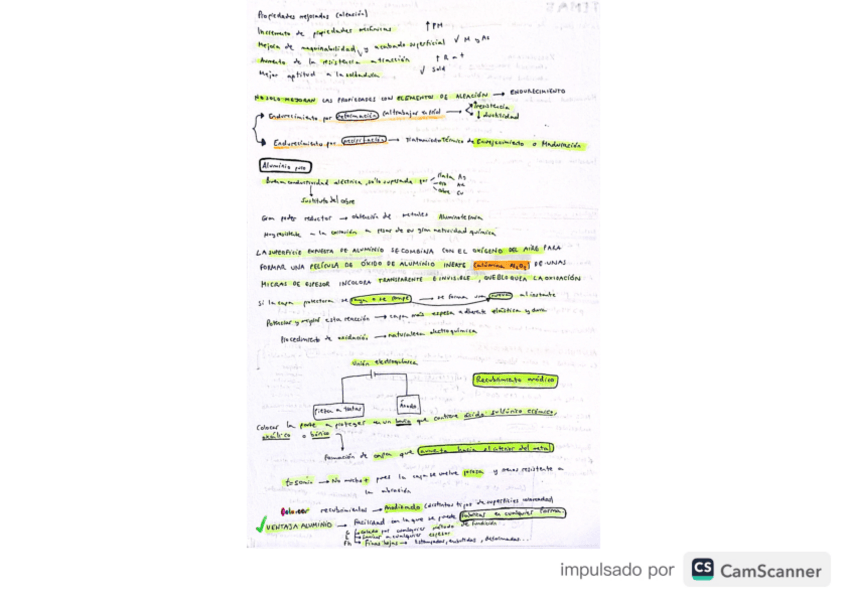 Propiedades mejoradas (aleación)
Incremento de propiedades mecánicas ↑ PM
Mejora de maquinabilidad y acabado superficial ✓ M y As
Aumento de la resistencia a tracción ↑ R a t
Mejor aptitud a la soldadura ✓ Sold
NO SOLO MEJORAN LAS PROPIEDADES CON ELEMENTOS DE ALEACIÓN → ENDURECIMIENTO
Endurecimiento por deformación (al trabajar en frío) → ↑ resistencia
↓ ductilidad
Endurecimiento por precipitación → tratamiento térmico de Envejecimiento o Maduración
Aluminio puro
Buena conductividad eléctrica, solo superada por Plata Ag
Oro Au
Cobre Cu
Sustituto del cobre
Gran poder reductor → obtención de metales Aluminotermia
Muy resistente a la corrosión a pesar de su gran actividad química
LA SUPERFICIE EXPUESTA DE ALUMINIO SE COMBINA CON EL OXÍGENO DEL AIRE PARA
FORMAR UNA PELÍCULA DE ÓXIDO DE ALUMINIO INERTE (alúmina Al₂O₃) DE UNAS
MICRAS DE ESPESOR INCOLORA TRANSPARENTE E INVISIBLE, QUE BLOQUEA LA OXIDACIÓN
Si la capa protectora se raya o se rompe → se forma una nueva al instante
Potenciar y mejorar esta reacción → capa más espesa adherente elástica y dura
Procedimiento de oxidación → naturaleza electroquímica
Unión electroquímica
Recubrimiento anódico
Pieza a tratar
Ánodo
Colocar la parte a proteger en un baño que contiene ácido sulfúrico crómico,
oxálico o bórico
Formación de capa que aumenta hacia el interior del metal
→ No mucho + pues la capa se vuelve porosa y menos resistente a
la abrasión
Colorear recubrimientos → Anodizado (distintos tipos de superficies coloreadas)
✓ VENTAJA ALUMINIO → Facilidad con la que se puede fabricar en cualquier forma
colado por cualquier método de fundición
laminar a cualquier espesor
Finas hojas → Estampadas, embutidas,
impulsado por CS CamScanner